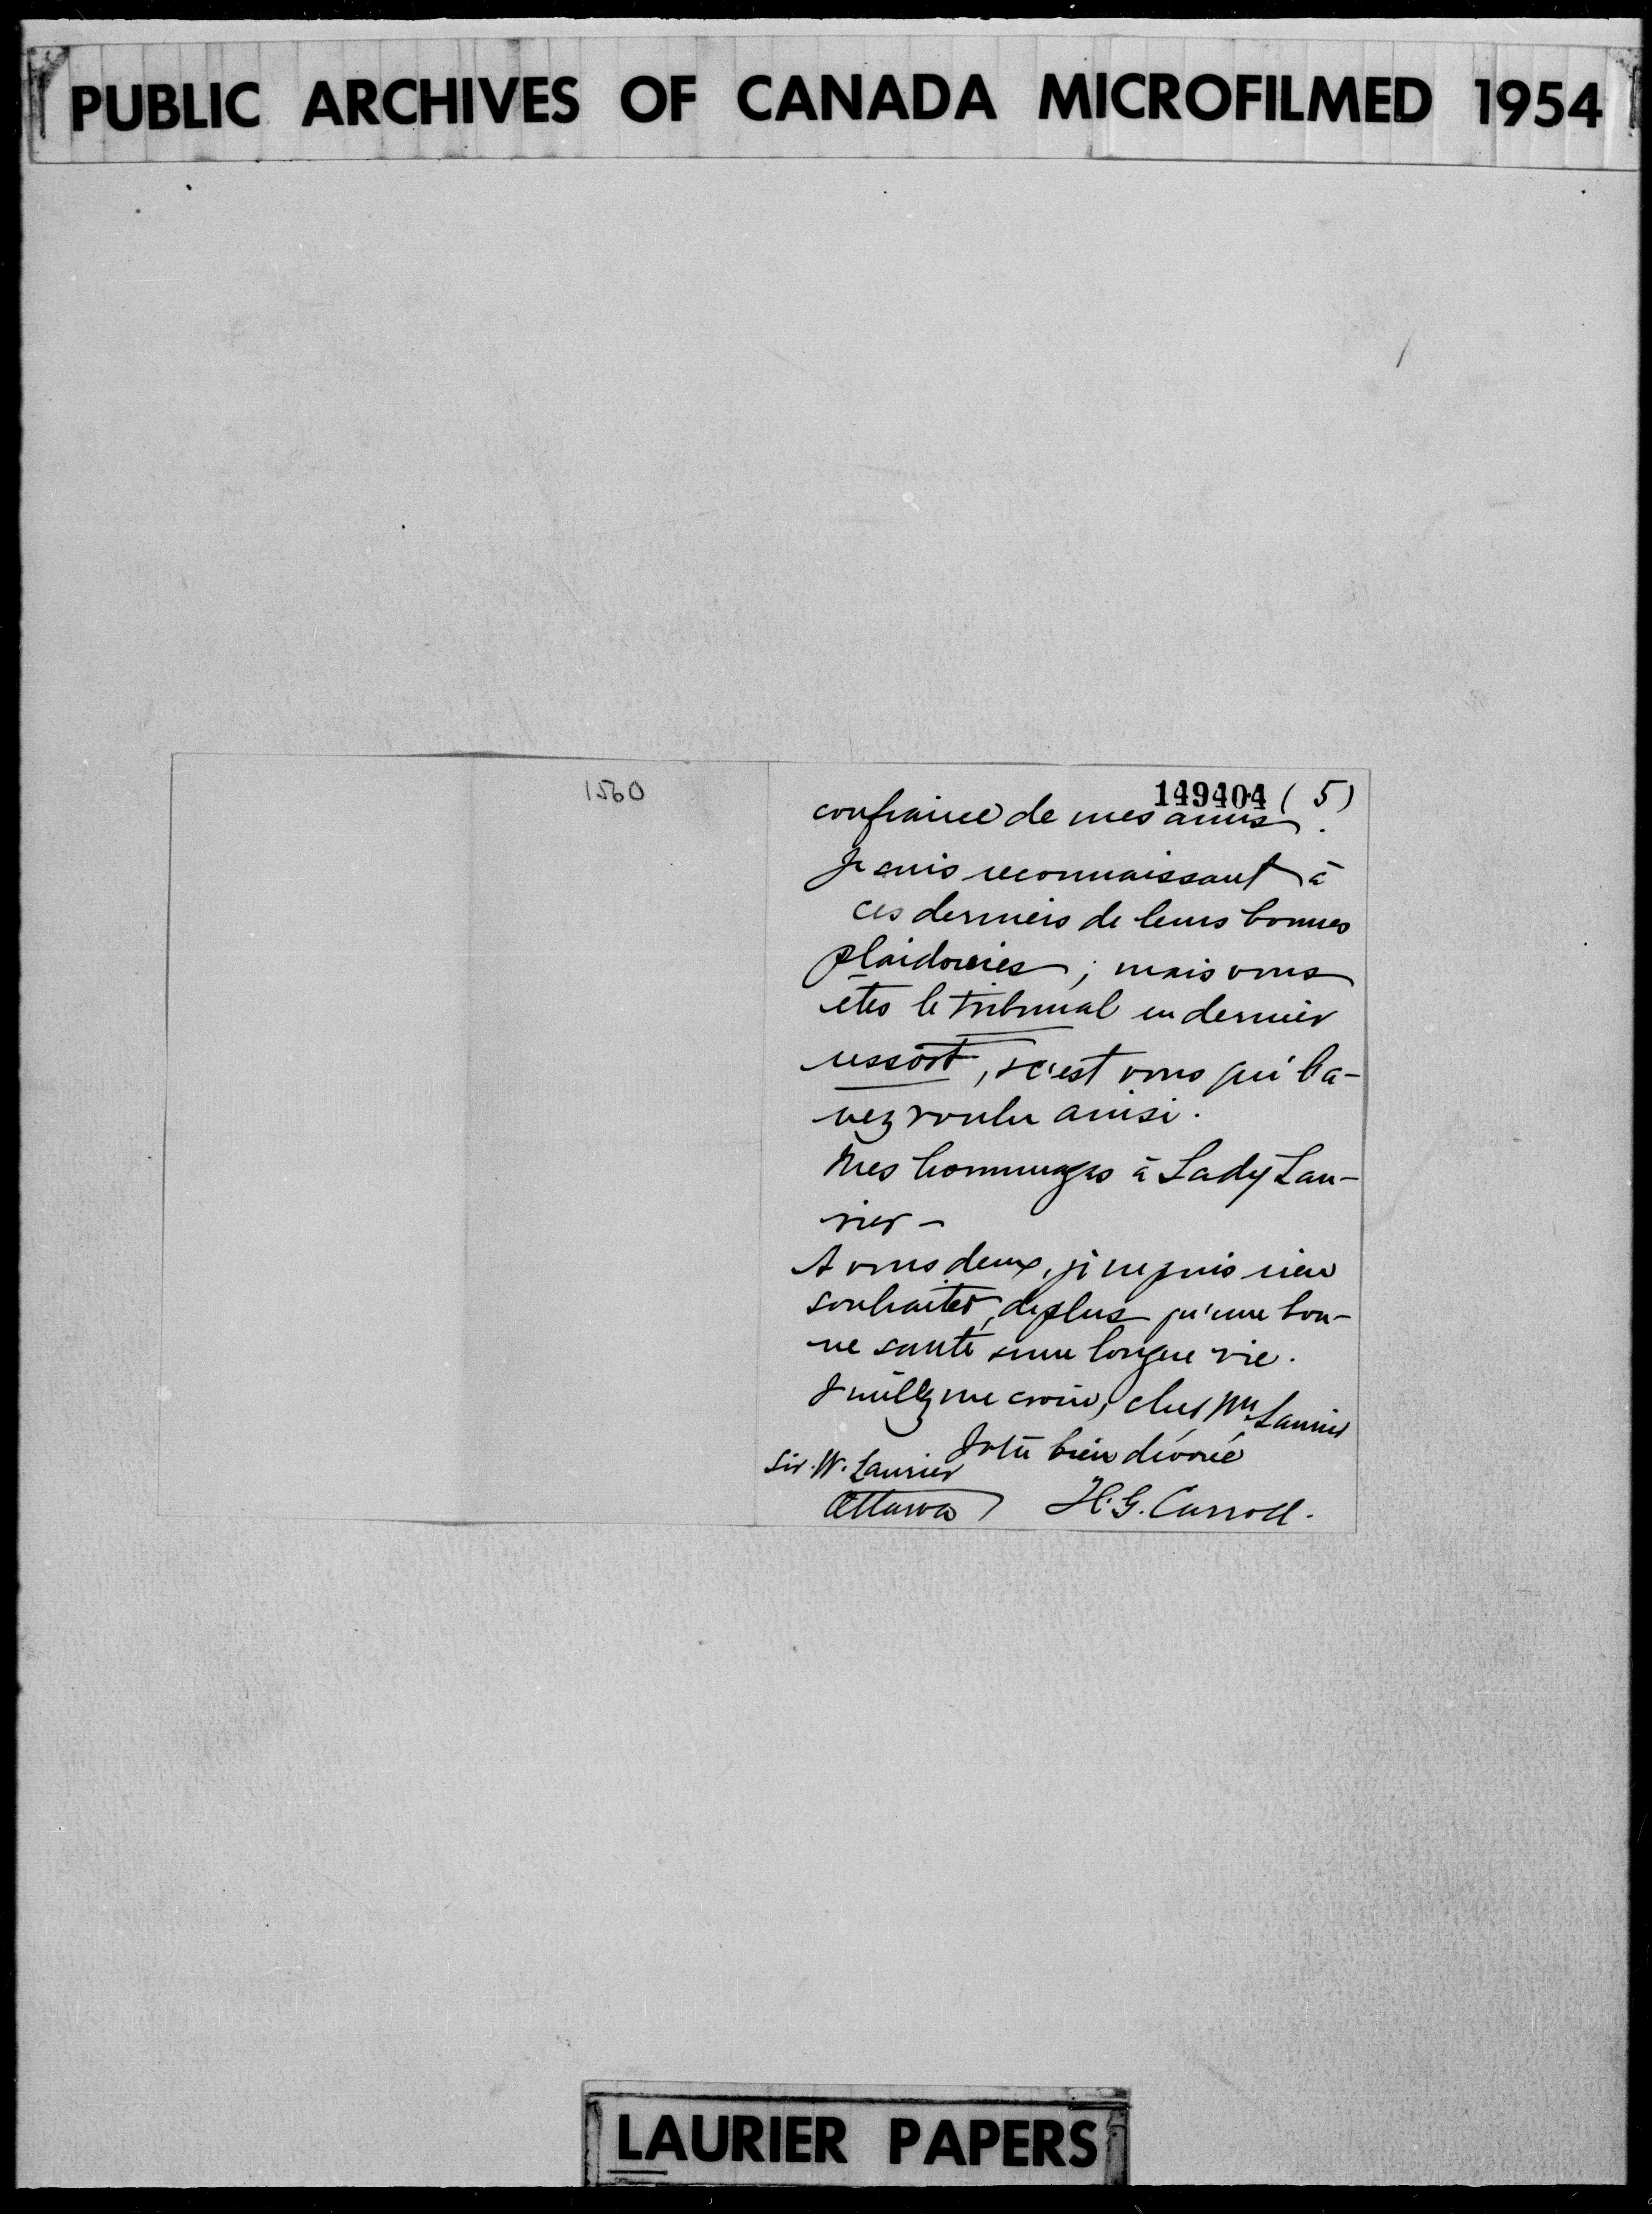 PUBLIC ARCHIVES OF CANADA MICROFILMED 1954
1560
149404 (5)
confiance de mes amis.
Je suis reconnaissant à
ces derniers de leurs bonnes
plaidoiries ; mais vous
êtes le tribunal en dernier
ressort, & c'est vous qui l'a-
vez voulu ainsi.
Mes hommages à Lady Lau-
rier -
A vous deux, je ne puis rien
souhaiter de plus qu'une bon-
ne santé & une longue vie.
Veuillez me croire, cher Mr Laurier
Votre bien dévoué
Sir. W. Laurier
Ottawa
H. G. Carroll.
LAURIER PAPERS